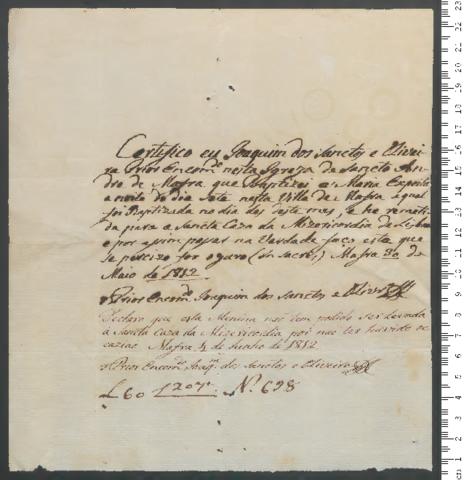 Certifico eu Joaquim dos Sanctos e Olivei-
ra Prior Encom.º nesta Igreja de Sancto An-
dre de Mafra que Baptizei a Maria Exposta
a noite do dia Sete nesta Villa de Mafra a qual
foi Baptizada no dia des deste mes, e he remeti-
da para a Sancta Caza da Mizericordia de Lisboa
e por assim passar na Verdade faço esta que
se precizo for o juro (in Sacris) Mafra 30 de
Maio de 1812
o Prior Encom.º Joaquim dos Sanctos e Oliv.ra
Declaro que esta Menina naõ tem podido ser levada
á Sancta Caza da Mizericordia por naõ ter havido oc-
caziaõ. Mafra 4 de Junho de 1812
o Prior Encom.º Joaq.m dos Sanctos e Oliveira
L 60 120 N.º 698